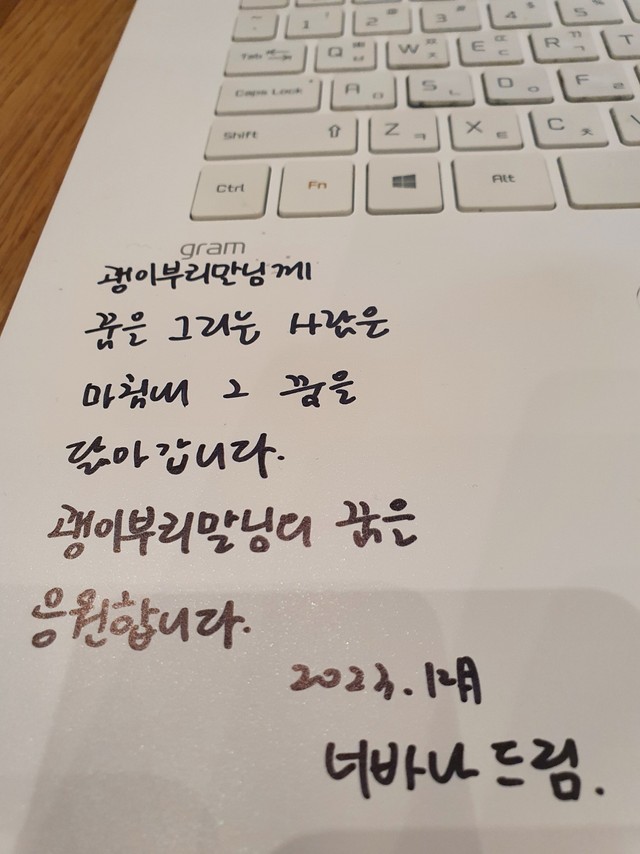 ~ `
1 !
2 @
3 #
4 $
5
Tab
Q ㅂ ㅃ
W ㅈ ㅉ
E ㄷ ㄸ
R ㄱ ㄲ
T
Caps Lock
A ㅁ
S ㄴ
D ㅇ
F ㄹ
Shift ⇧
Z ㅋ
X ㅌ
C ㅊ
Ctrl
Fn
Alt
gram
괭이부리말님께
꿈을 그리는 사람은
마침내 그 꿈을
닮아갑니다.
괭이부리말님의 꿈을
응원합니다.
2023.12月
너바나 드림.